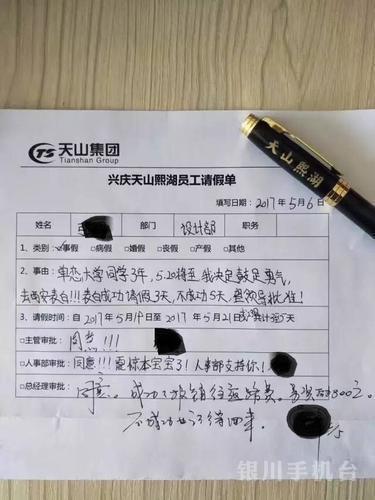 TS 天山集团
Tianshan Group
天山熙湖
兴庆天山熙湖员工请假单
填写日期：2017年5月6日
姓名 部门 设计部 职务
1、类别：☑事假 □病假 □婚假 □丧假 □产假 □其他
2、事由：单恋大学同学3年，5.20将至，我决定鼓足勇气，
去西安表白!!!表白成功请假3天，不成功5天，望领导批准！
3、请假时间：自2017年5月19日至2017年5月21日 共计 5天
□主管审批：同意!!!
□人事部审批：同意!!!震惊本宝宝了!人事部支持你!
□总经理审批：同意。成功了报销往返路费，
不成功也记得回来。
银川手机台